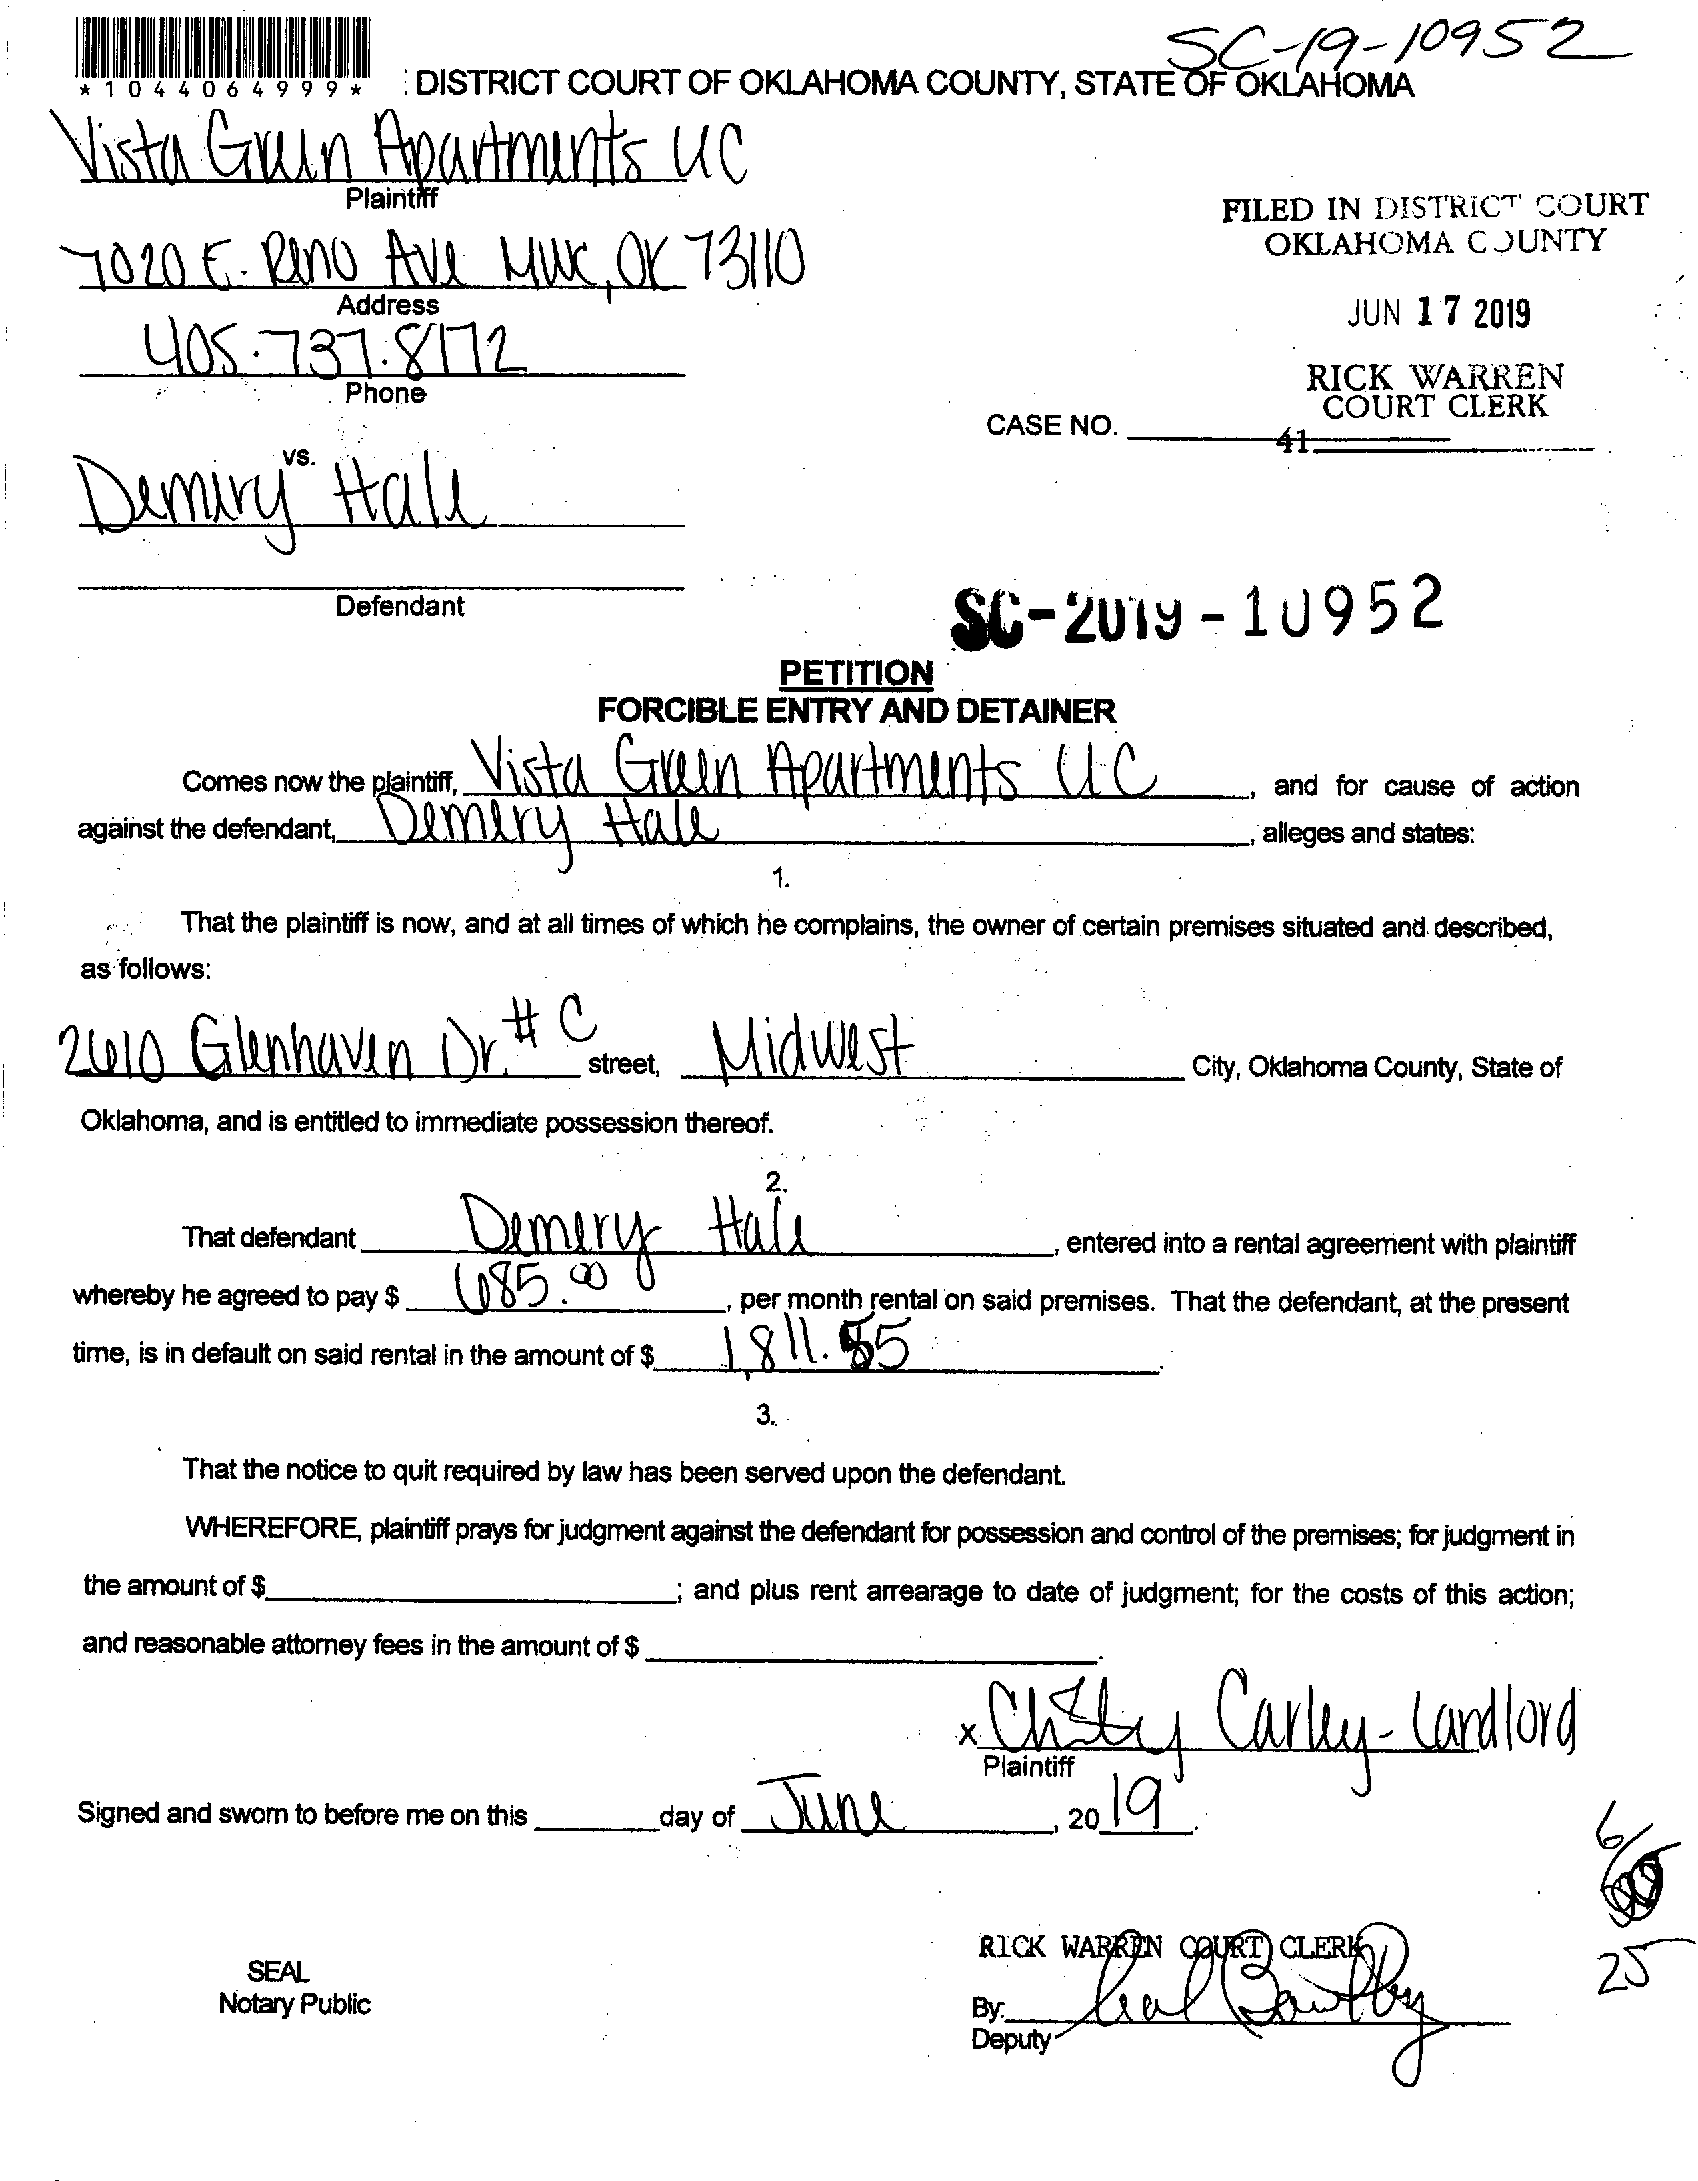 SC-19-10952
*1044064999*
DISTRICT COURT OF OKLAHOMA COUNTY, STATE OF OKLAHOMA
Vista Green Apartments LLC
Plaintiff
FILED IN DISTRICT COURT
OKLAHOMA COUNTY
7020 E. Reno Ave MWC, OK 73110
Address
JUN 17 2019
405.737.8172
Phone
RICK WARREN
COURT CLERK
CASE NO.
41
vs.
Demery Hale
Defendant
SC-2019-10952
PETITION
FORCIBLE ENTRY AND DETAINER
Comes now the plaintiff, Vista Green Apartments LLC, and for cause of action
against the defendant, Demery Hale, alleges and states:
1.
That the plaintiff is now, and at all times of which he complains, the owner of certain premises situated and described,
as follows:
2610 Glenhaven Dr. # C street, Midwest City, Oklahoma County, State of
Oklahoma, and is entitled to immediate possession thereof.
2.
That defendant Demery Hale, entered into a rental agreement with plaintiff
whereby he agreed to pay $ 685.00, per month rental on said premises. That the defendant, at the present
time, is in default on said rental in the amount of $ 1,811.85.
3.
That the notice to quit required by law has been served upon the defendant.
WHEREFORE, plaintiff prays for judgment against the defendant for possession and control of the premises; for judgment in
the amount of $ ; and plus rent arrearage to date of judgment; for the costs of this action;
and reasonable attorney fees in the amount of $ .
x Christy Carley - Landlord
Plaintiff
Signed and sworn to before me on this day of June, 2019.
6/
25
RICK WARREN COURT CLERK
SEAL
Notary Public
By:
Deputy